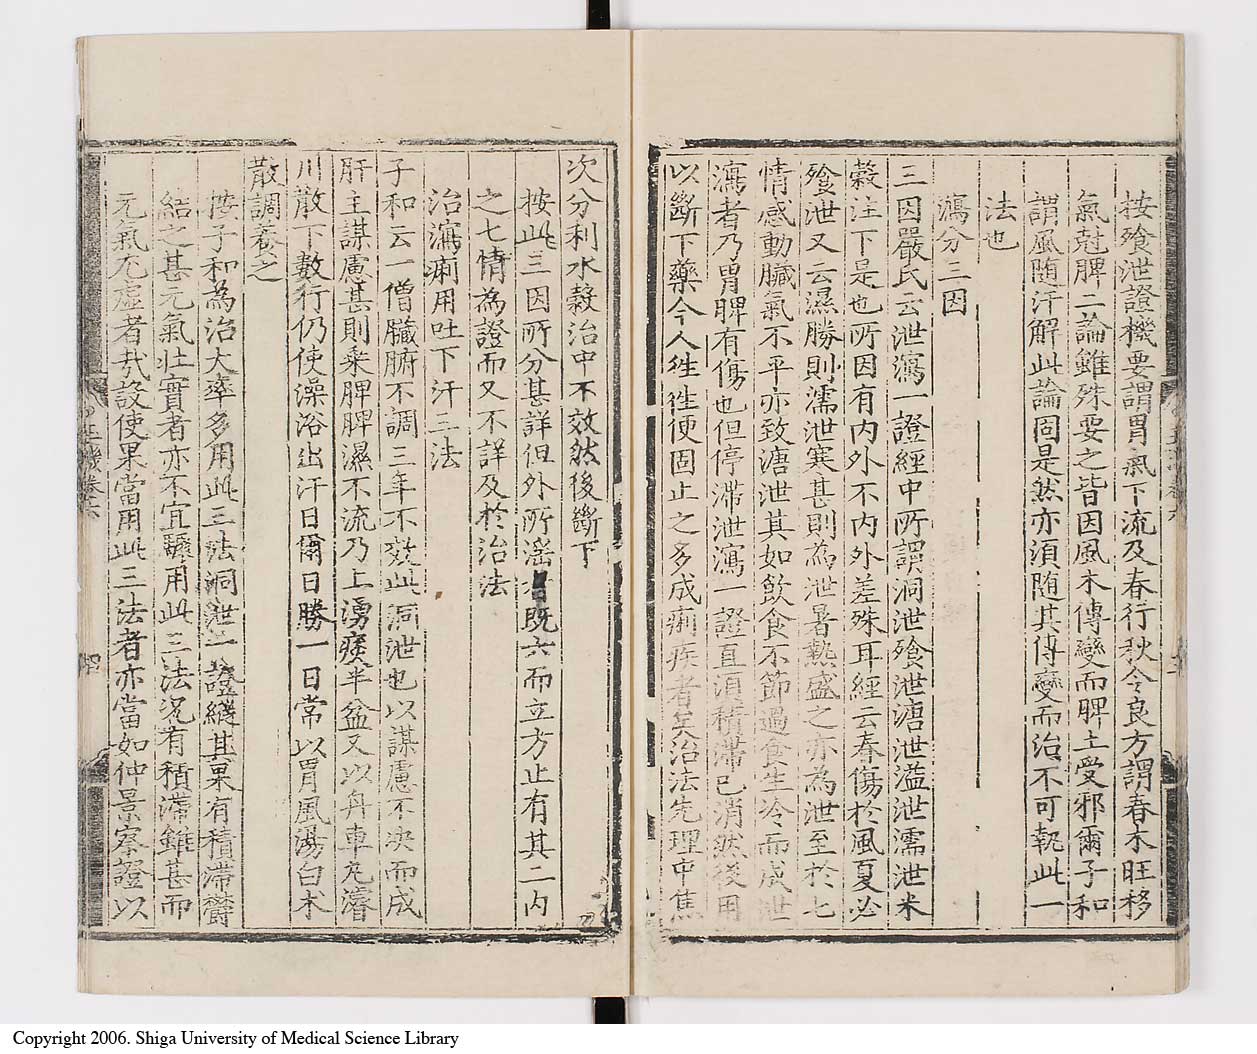 按飱泄證機要謂胃氣下流及春行秋令良方謂春木旺移
氣尅脾二論雖殊要之皆因風木傳變而脾土受邪爾子和
謂風随汗解此論固是然亦須随其傳變而治不可執此一
法也
瀉分三因
三因嚴氏云泄瀉一證經中所謂洞泄飱泄溏泄溢泄濡泄米
穀注下是也所因有内外不内外差殊耳經云春傷於風夏必
飱泄又云濕勝則濡泄寒甚則為泄暑熱盛之亦為泄至於七
情感動臟氣不平亦致溏泄其如飲食不節過食生冷而成泄
瀉者乃胃脾有傷也但停滯泄瀉一證直須積滯已消然後用
以斷下藥今人徃徃便固止之多成痢疾者矣治法先理中焦
次分利水穀治中不效然後斷下
按此三因所分甚詳但外所滛者既六而立方止有其二内
之七情為證而又不詳及於治法
治瀉痢用吐下汗三法
子和云一僧臟腑不調三年不效此洞泄也以謀慮不决而成
肝主謀慮甚則乘脾脾濕不流乃上湧痰半盆又以舟車丸濬
川散下數行仍使澡浴出汗日爾日勝一日常以胃風湯白术
散調養之
按子和為治大率多用此三法洞泄一證縱其果有積滯鬱
結之甚元氣壯實者亦不宜驟用此三法况有積滯雖甚而
元氣尢虛者㢤設使果當用此三法者亦當如仲景察證以